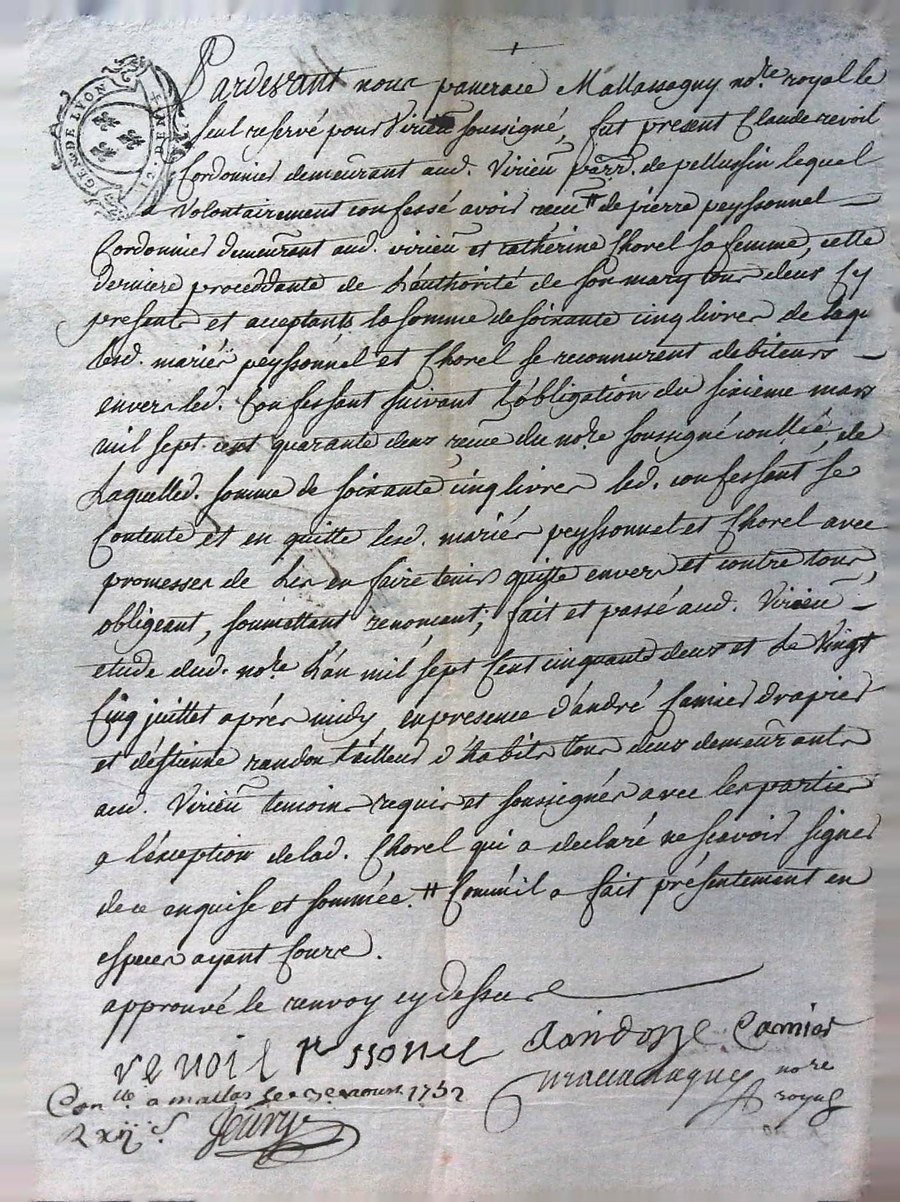 GEN. DE LYON
Pardevant nous pancrace Mallassagny no.re royal le
seul reservé pour Virieu soussigné, fut present Claude revoil
Cordonnier demeurant aud. Virieu parr. de pellussin lequel
a volontairement confessé avoir receu # de pierre peyssonnel
Cordonnier demeurant aud. virieu et catherine Chorel sa femme, cette
derniere proceddante de L'authorité de son mary tous deux Cy
presents et acceptants la somme de soixante cinq livres de laqu
lesd. mariés peyssonnel et Chorel se reconnurent debiteurs
envers led. Confessant suivant L'obligation du sixieme mars
mil sept cent quarante deux receue du no.re soussigné conllée, de
Laquelled. somme de soixante cinq livres led. confessant se
Contente et en quitte lesd. mariés peyssonnel et Chorel avec
promesses de Les en faire tenir quitte envers et contre tous,
obligeant, soumettant renoncant; fait et passé aud. Virieu
etude dud. no.re L'an mil sept Cent cinquante deux et Le Vingt
Cinq juillet aprés midy en presence d'andré Camier drapier
et d'éstienne randon tailleur d'habits tous deux demeurants
aud. Virieu temoins requis et soussignés avec les parties
a l'éxception delad. Chorel qui a declaré ne scavoir signer
de ce enquise et sommée. # Comm'il a fait présentement en
especes ayant Cours.
approuvé le renvoy cy dessus
revoil pessonel Randon Camier
Con.lle a mallas le aoust 1752
Mallassagny no.re
royal
R xij s.